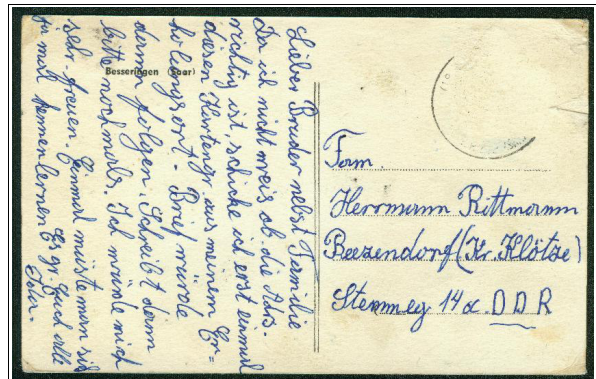 Lieber Bruder nebst Familie
Da ich nicht weis ob die Adrs.
richtig ist, schicke ich erst einmal
diesen Kartengr. aus meinem Er=
holungsort. Brief würde
dann folgen. Schreibt dann
bitte nochmals. Ich würde mich
sehr freuen. Einmal müste man sich
ja mal kennen lernen. Es gr. Euch alle
Besseringen (Saar)
Fam.
Herrmann Rittmann
Beezendorf (Kr. Klötze)
Stemmeg 14a. DDR